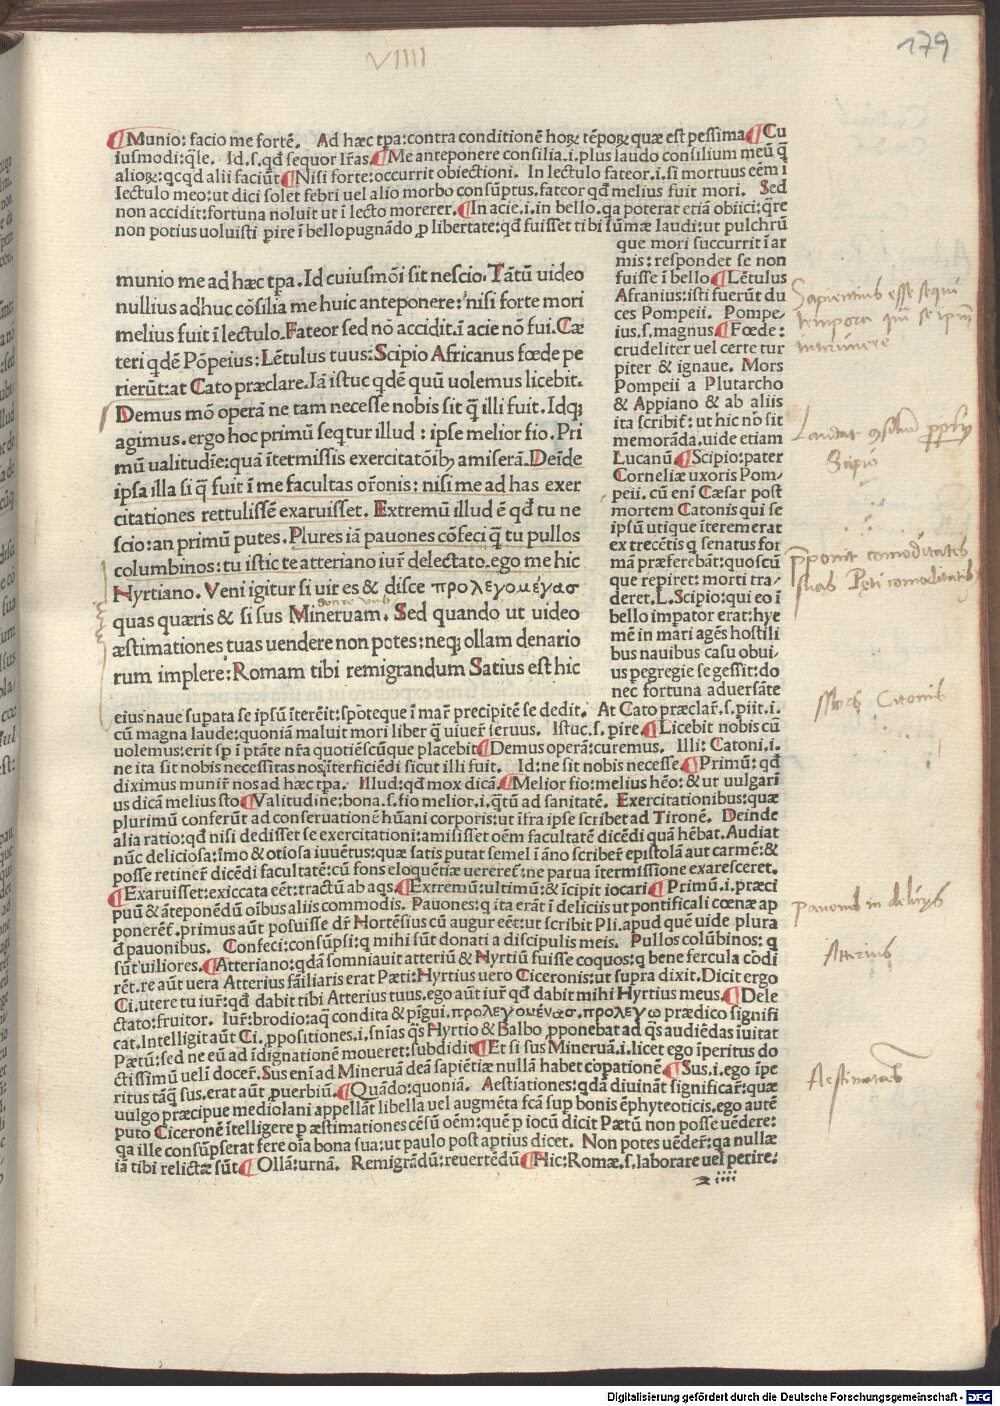 VIIII
179
¶Munio: facio me fortē. Ad hæc tpa: contra conditionē hoꝝ tēpoꝝ quæ est pessima¶Cu
iusmodi: q̄le. Id.s.qđ sequor lr̄as.¶Me anteponere consilia.i.plus laudo consilium meū q̄
alioꝝ: qcqd alii faciūt¶Nisi forte: occurrit obiectioni. In lectulo fateor.i.si mortuus eēm ī
lectulo meo: ut dici solet febri uel alio morbo consūptus.fateor qđ melius fuit mori. Sed
non accidit: fortuna noluit ut ī lecto morerer.¶In acie.i.in bello.qa poterat etiā obiici: q̄re
non potius uoluisti pire ī bello pugnādo ꝓ libertate: qđ fuisset tibi sūmæ laudi: ut pulchrū
que mori succurrit ī ar
mis: respondet se non
fuisse ī bello¶Lētulus
Afranius: isti fuerūt du
ces Pompeii. Pompe-
ius.s.magnus.¶Fœde:
crudeliter uel certe tur
piter & ignaue. Mors
Pompeii a Plutarcho
& Appiano & ab aliis
ita scribit̄: ut hic nō sit
memorāda.uide etiam
Lucanū¶Scipio: pater
Corneliæ uxoris Pom-
peii. cū enī Cæsar post
mortem Catonis qui se
ipsū utique īteremerat
ex trecētis q senatus for
mā præferebāt: quos cū
que repiret: morti tra-
deret.L.Scipio: qui eo ī
bello impator erat: hye
mē in mari agēs hostili
bus nauibus casu obui-
us pegregie se gessit: do
nec fortuna aduersāte
munio me ad hæc tpa. Id cuiusmōi sit nescio. Tātū uideo
nullius adhuc cōsilia me huic anteponere: nisi forte mori
melius fuit ī lectulo. Fateor sed nō accidit. ī acie nō fui. Cæ
teri qdē Pōpeius: Lētulus tuus: Scipio Africanus fœde pe
rierūt: at Cato præclare. Iā istuc qdē quū uolemus licebit.
Demus mō operā ne tam necesse nobis sit q̄ illi fuit. Idq;
agimus. ergo hoc primū seqtur illud : ipse melior fio. Pri
mū ualitudīe: quā ītermissis exercitatōibꝫ amiserā. Deīde
ipsa illa si q̄ fuit ī me facultas or̄onis: nisi me ad has exer
citationes rettulissē exaruisset. Extremū illud ē qđ tu ne
scio: an primū putes. Plures iā pauones cōfeci q̄ tu pullos
columbinos: tu istic te atteriano iur̄ delectato. ego me hic
Hyrtiano. Veni igitur si uir es & disce προλεγομένασ
quas quæris & si sus Mineruam. Sed quando ut uideo
æstimationes tuas uendere non potes: neq; ollam denario
rum implere: Romam tibi remigrandum Satius est hic
eius naue supata se ipsū īterēit: spōteque ī mar̄ precipitē se dedit. At Cato præclar̄.s.piit.i.
cū magna laude: quoniā maluit mori liber q̄ uiuer̄ seruus. Istuc.s.pire.¶Licebit nobis cū
uolemus: erit sp ī ptāte nr̄a quotiēscūque placebit¶Demus operā: curemus. Illi: Catoni.i.
ne ita sit nobis necessitas nos īterficiēdi sicut illi fuit. Id: ne sit nobis necesse.¶Primū: qđ
diximus munir̄ nos ad hæc tpa. Illud: qđ mox dicā.¶Melior fio: melius hēo: & ut uulgari
us dicā melius sto¶Valitudine: bona.s.fio melior.i.q̄tū ad sanitatē. Exercitationibus: quæ
plurimū conferūt ad conseruationē hūani corporis: ut īfra ipse scribet ad Tironē. Deinde
alia ratio: qđ nisi dedisset se exercitationi: amisisset oēm facultatē dicēdi quā hēbat. Audiat
nūc deliciosa: īmo & otiosa iuuētus: quæ satis putat semel ī āno scriber̄ epistolā aut carmē: &
posse retiner̄ dicēdi facultatē: cū fons eloquētiæ uereret̄: ne parua ītermissione exaresceret.
¶Exaruisset: exiccata eēt: tractū ab aqs.¶Extremū: ultimū: & īcipit iocari¶Primū.i.præci
puū & āteponēdū oībus aliis commodis. Pauones: q ita erāt ī deliciis ut pontificali cœnæ ap
ponerēt̄.primus aūt posuisse dr̄ Hortēsius cū augur eēt: ut scribit Pli.apud quē uide plura
đ pauonibus. Confeci: consūpsi: q mihi sūt donati a discipulis meis. Pullos colūbinos: q
sūt uiliores.¶Atteriano: qdā somniauit atteriū & Nyrtiū fuisse coquos: q bene fercula cōdi
rēt.re aūt uera Atterius fāiliaris erat Pæti: Hyrtius uero Ciceronis: ut supra dixit. Dicit ergo
Ci.utere tu iur̄: qđ dabit tibi Atterius tuus.ego aūt iur̄ qđ dabit mihi Hyrtius meus.¶Dele
ctato: fruitor. Iur̄: brodio: aq condita & pīgui.προλεγομένασ.προλεγω prædico signifi
cat. Intelligit aūt Ci.ꝓpositiones.i.snīas q̄s Hyrtio & Balbo ꝓponebat ad q̄s audiēdas īuitat
Pætū: sed ne eū ad īdignationē moueret: subdidit¶Et si sus Mineruā.i.licet ego īperitus do
ctissimū uelī docer̄. Sus enī ad Mineruā deā sapiētiæ nullā habet cōpationē¶Sus.i.ego īpe
ritus tāq̄ sus.erat aūt ꝓuerbiū.¶Quādo: quoniā. Aestiationes: qdā diuināt significar̄: quæ
uulgo præcipue mediolani appellāt libella uel augmēta fcā sup bonis ēphyteoticis.ego autē
puto Ciceronē ītelligere p æstimationes cēsū oēm: quē p iocū dicit Pætū non posse uēdere:
qa ille consūpserat fere oīa bona sua: ut paulo post aptius dicet. Non potes uēder̄: qa nullæ
iā tibi relictæ sūt¶Ollā: urnā. Remigrādū: reuertēdū¶Hic: Romæ.s.laborare uel perire:
z iiii
Sapientius esse sequi
tempora
Laudat
Scipio
comoditates
suas
Catonis
pauones in delicijs
Atterius
Digitalisierung gefördert durch die Deutsche Forschungsgemeinschaft - DFG